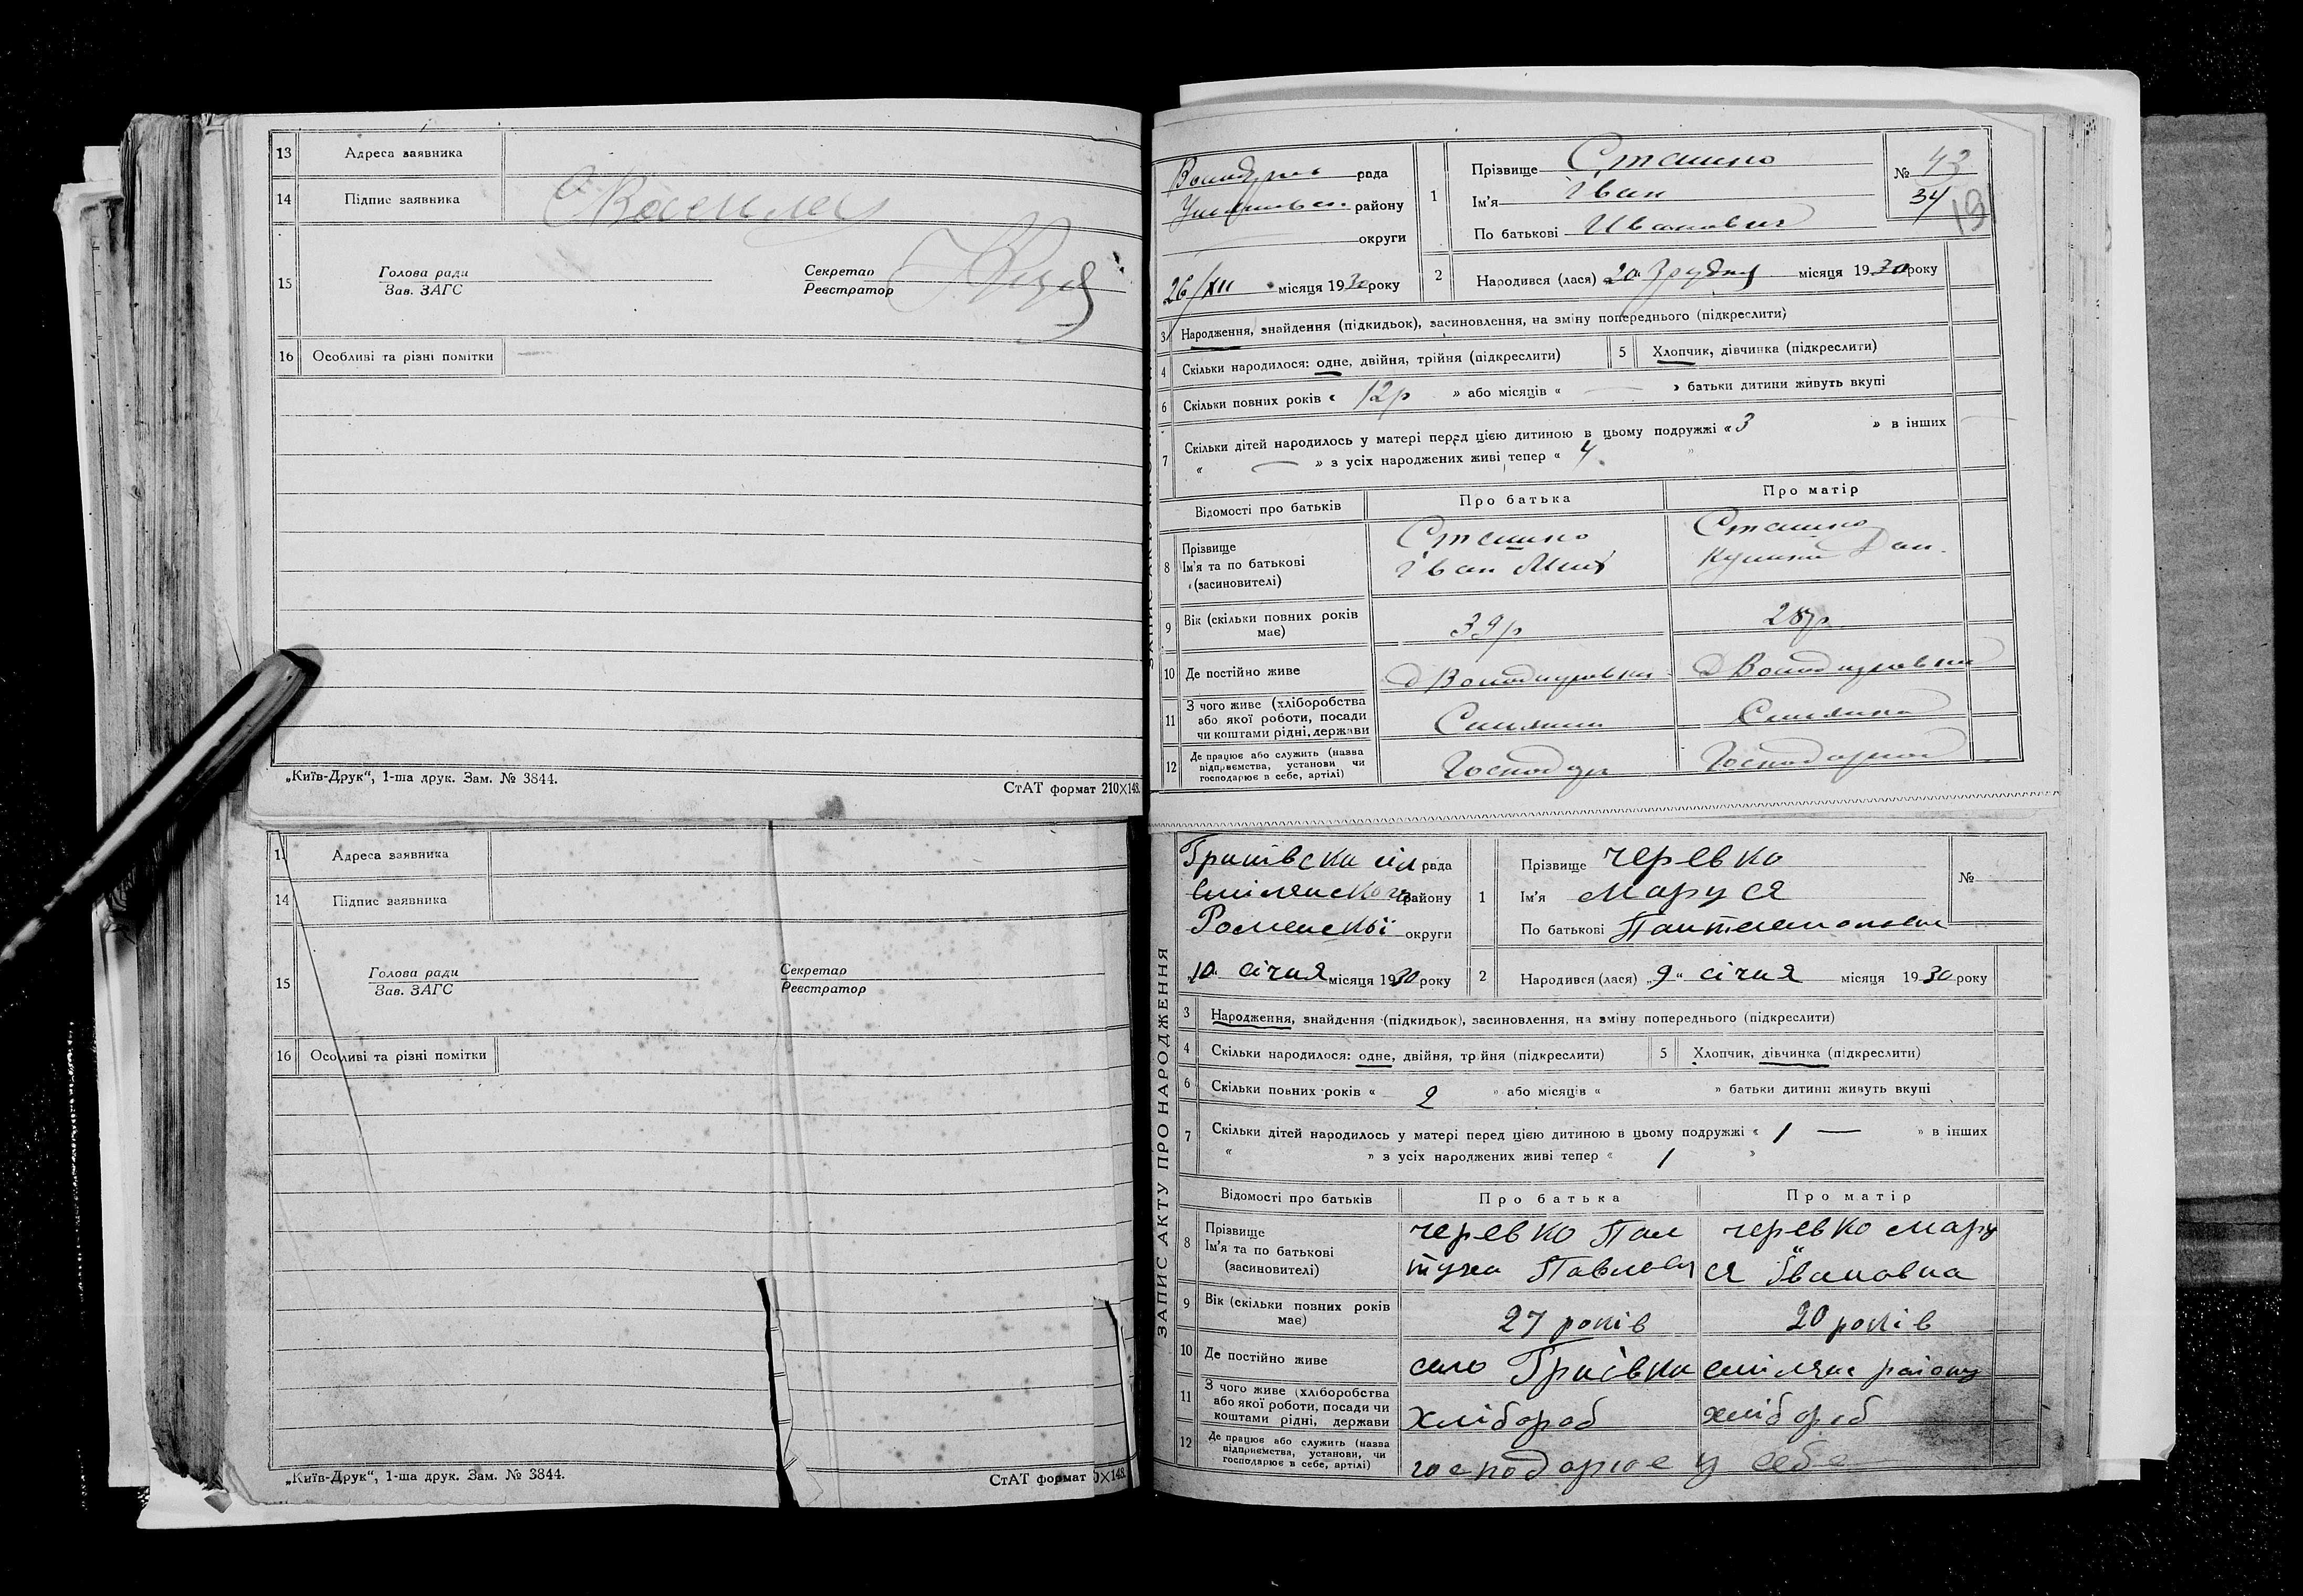 13 Адреса заявника
14 Підпис заявника
15 Голова ради
Зав. ЗАГС
Секретар
Реєстратор
16 Особливі та різні помітки
„Київ-Друк“, 1-ша друк. Зам. № 3844.
СтАТ формат 210×148.
рада
району
округи
26/XII місяця 1930 року
1 Прізвище Сташко
Ім'я Іван
По батькові Иванович
№ 43
34
19
2 Народився (лася) 20 Грудня місяця 1930 року
3 Народження, знайдення (підкидьок), засиновлення, на зміну попереднього (підкреслити)
4 Скільки народилося: одне, двійня, трійня (підкреслити) 5 Хлопчик, дівчинка (підкреслити)
6 Скільки повних років « 12р » або місяців « — » батьки дитини живуть вкупі
7 Скільки дітей народилось у матері перед цією дитиною в цьому подружжі « 3 » в інших
« — » з усіх народжених живі тепер « 4 »
Відомості про батьків Про батька Про матір
8 Прізвище
Ім'я та по батькові
(засиновителі)
Сташко
Іван Мих
Сташко
9 Вік (скільки повних років
має)
39р
28р
10 Де постійно живе
11 З чого живе (хліборобства
або якої роботи, посади
чи коштами рідні, держави
12 Де працює або служить (назва
підприємства, установи чи
господарює в себе, артілі)
ЗАПИС АКТУ ПРО НАРОДЖЕННЯ
14 Адреса заявника
14 Підпис заявника
15 Голова ради
Зав. ЗАГС
Секретар
Реєстратор
16 Особливі та різні помітки
„Київ-Друк“, 1-ша друк. Зам. № 3844.
СтАТ формат 0×148.
рада
смілянского району
Роменскої округи
„10“ січня місяця 1930 року
1 Прізвище черевко
Ім'я Маруся
По батькові
№
2 Народився (лася) „9“ січня місяця 1930 року
3 Народження, знайдення (підкидьок), засиновлення, на зміну попереднього (підкреслити)
4 Скільки народилося: одне, двійня, трійня (підкреслити) 5 Хлопчик, дівчинка (підкреслити)
6 Скільки повних років « 2 » або місяців « » батьки дитини живуть вкупі
7 Скільки дітей народилось у матері перед цією дитиною в цьому подружжі « 1 — » в інших
« » з усіх народжених живі тепер « 1 »
Відомості про батьків Про батька Про матір
8 Прізвище
Ім'я та по батькові
(засиновителі)
черевко Пан
черевко мару
ся Івановна
9 Вік (скільки повних років
має)
27 років
20 років
10 Де постійно живе
село
району
11 З чого живе (хліборобства
або якої роботи, посади чи
коштами рідні, держави
хлібороб
хлібороб
12 Де працює або служить (назва
підприємства, установи, чи
господарює в себе, артілі)
господарює у себе